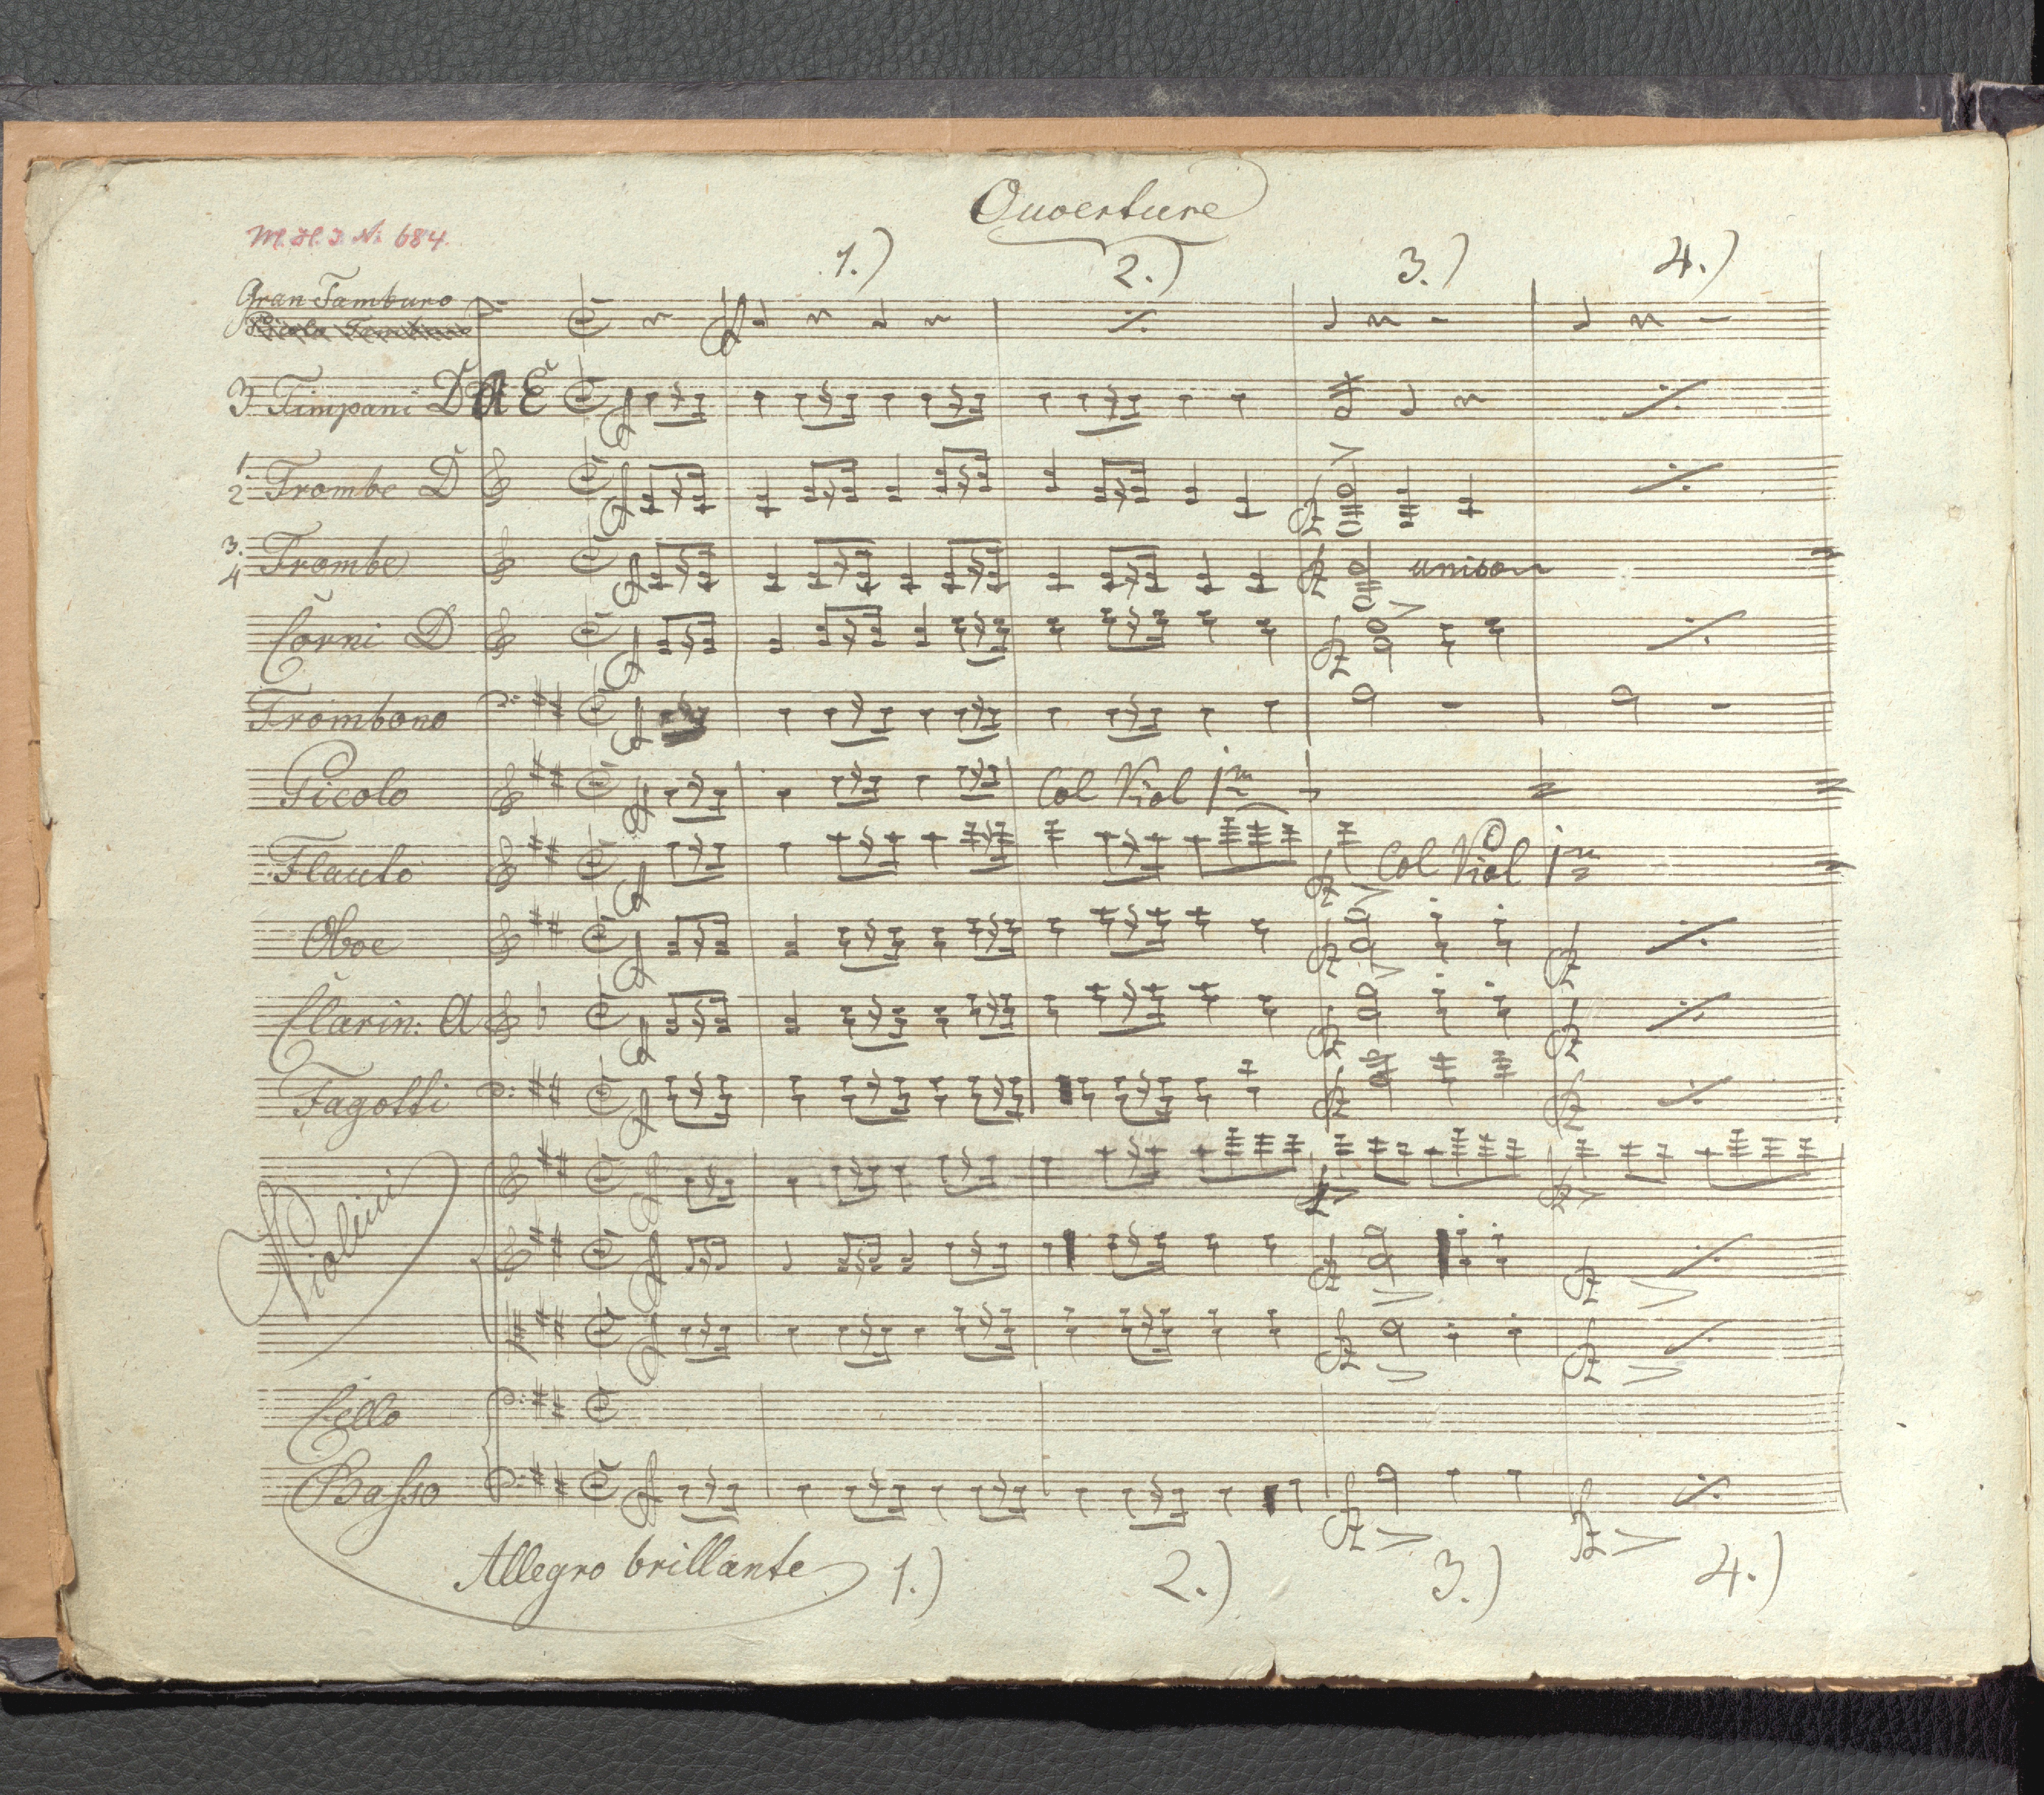 Ouverture
M. H. I. N: 684.
1.) 2.) 3.) 4.)
Gran Tamburo
3 Timpani D A E
1 2 Trombe D
3. 4 Trombe unison
Corni D
Trombono
Picolo Col Viol 1m
Flauto Col Viol 1m
Oboe
Clarin: A
Fagotti
Violini
Cello
Basso
Allegro brillante 1.) 2.) 3.) 4.)